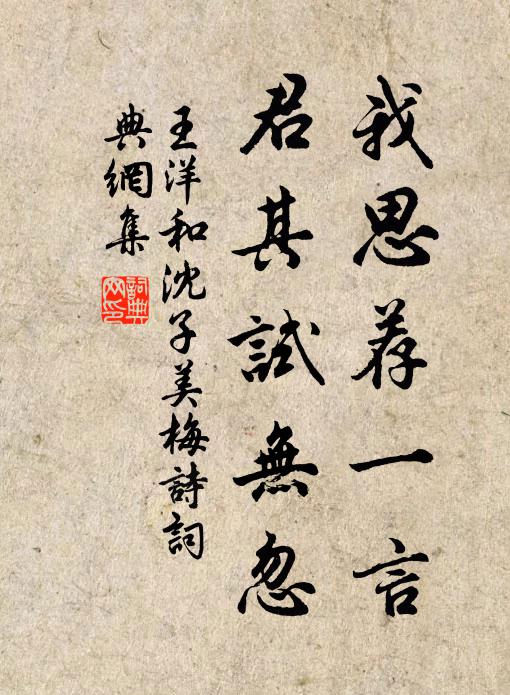 我思荐一言
君其試無忽
王洋和沈子美梅詩詞
典網集
詞典網印